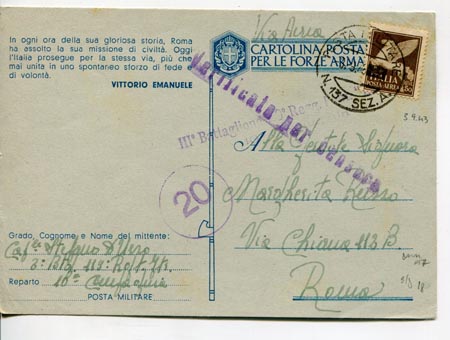 In ogni ora della sua gloriosa storia, Roma
ha assolto la sua missione di civiltà. Oggi
l'Italia prosegue per la stessa via, più che
mai unita in uno spontaneo sforzo di fede e
di volontà.
VITTORIO EMANUELE
Via Aerea
CARTOLINA POSTA
PER LE FORZE ARMA
POSTA
N. 137 SEZ. A
POSTA AEREA
Verificato per censura
IIIº Battaglione
3.9.43
20
Alla Gentile Signora
Margherita Russo
Via Chiana 113 B.
Roma
Grado, Cognome e Nome del mittente:
Stefano
3º Btg. Rgt.
Reparto 10ª Compagnia
POSTA MILITARE